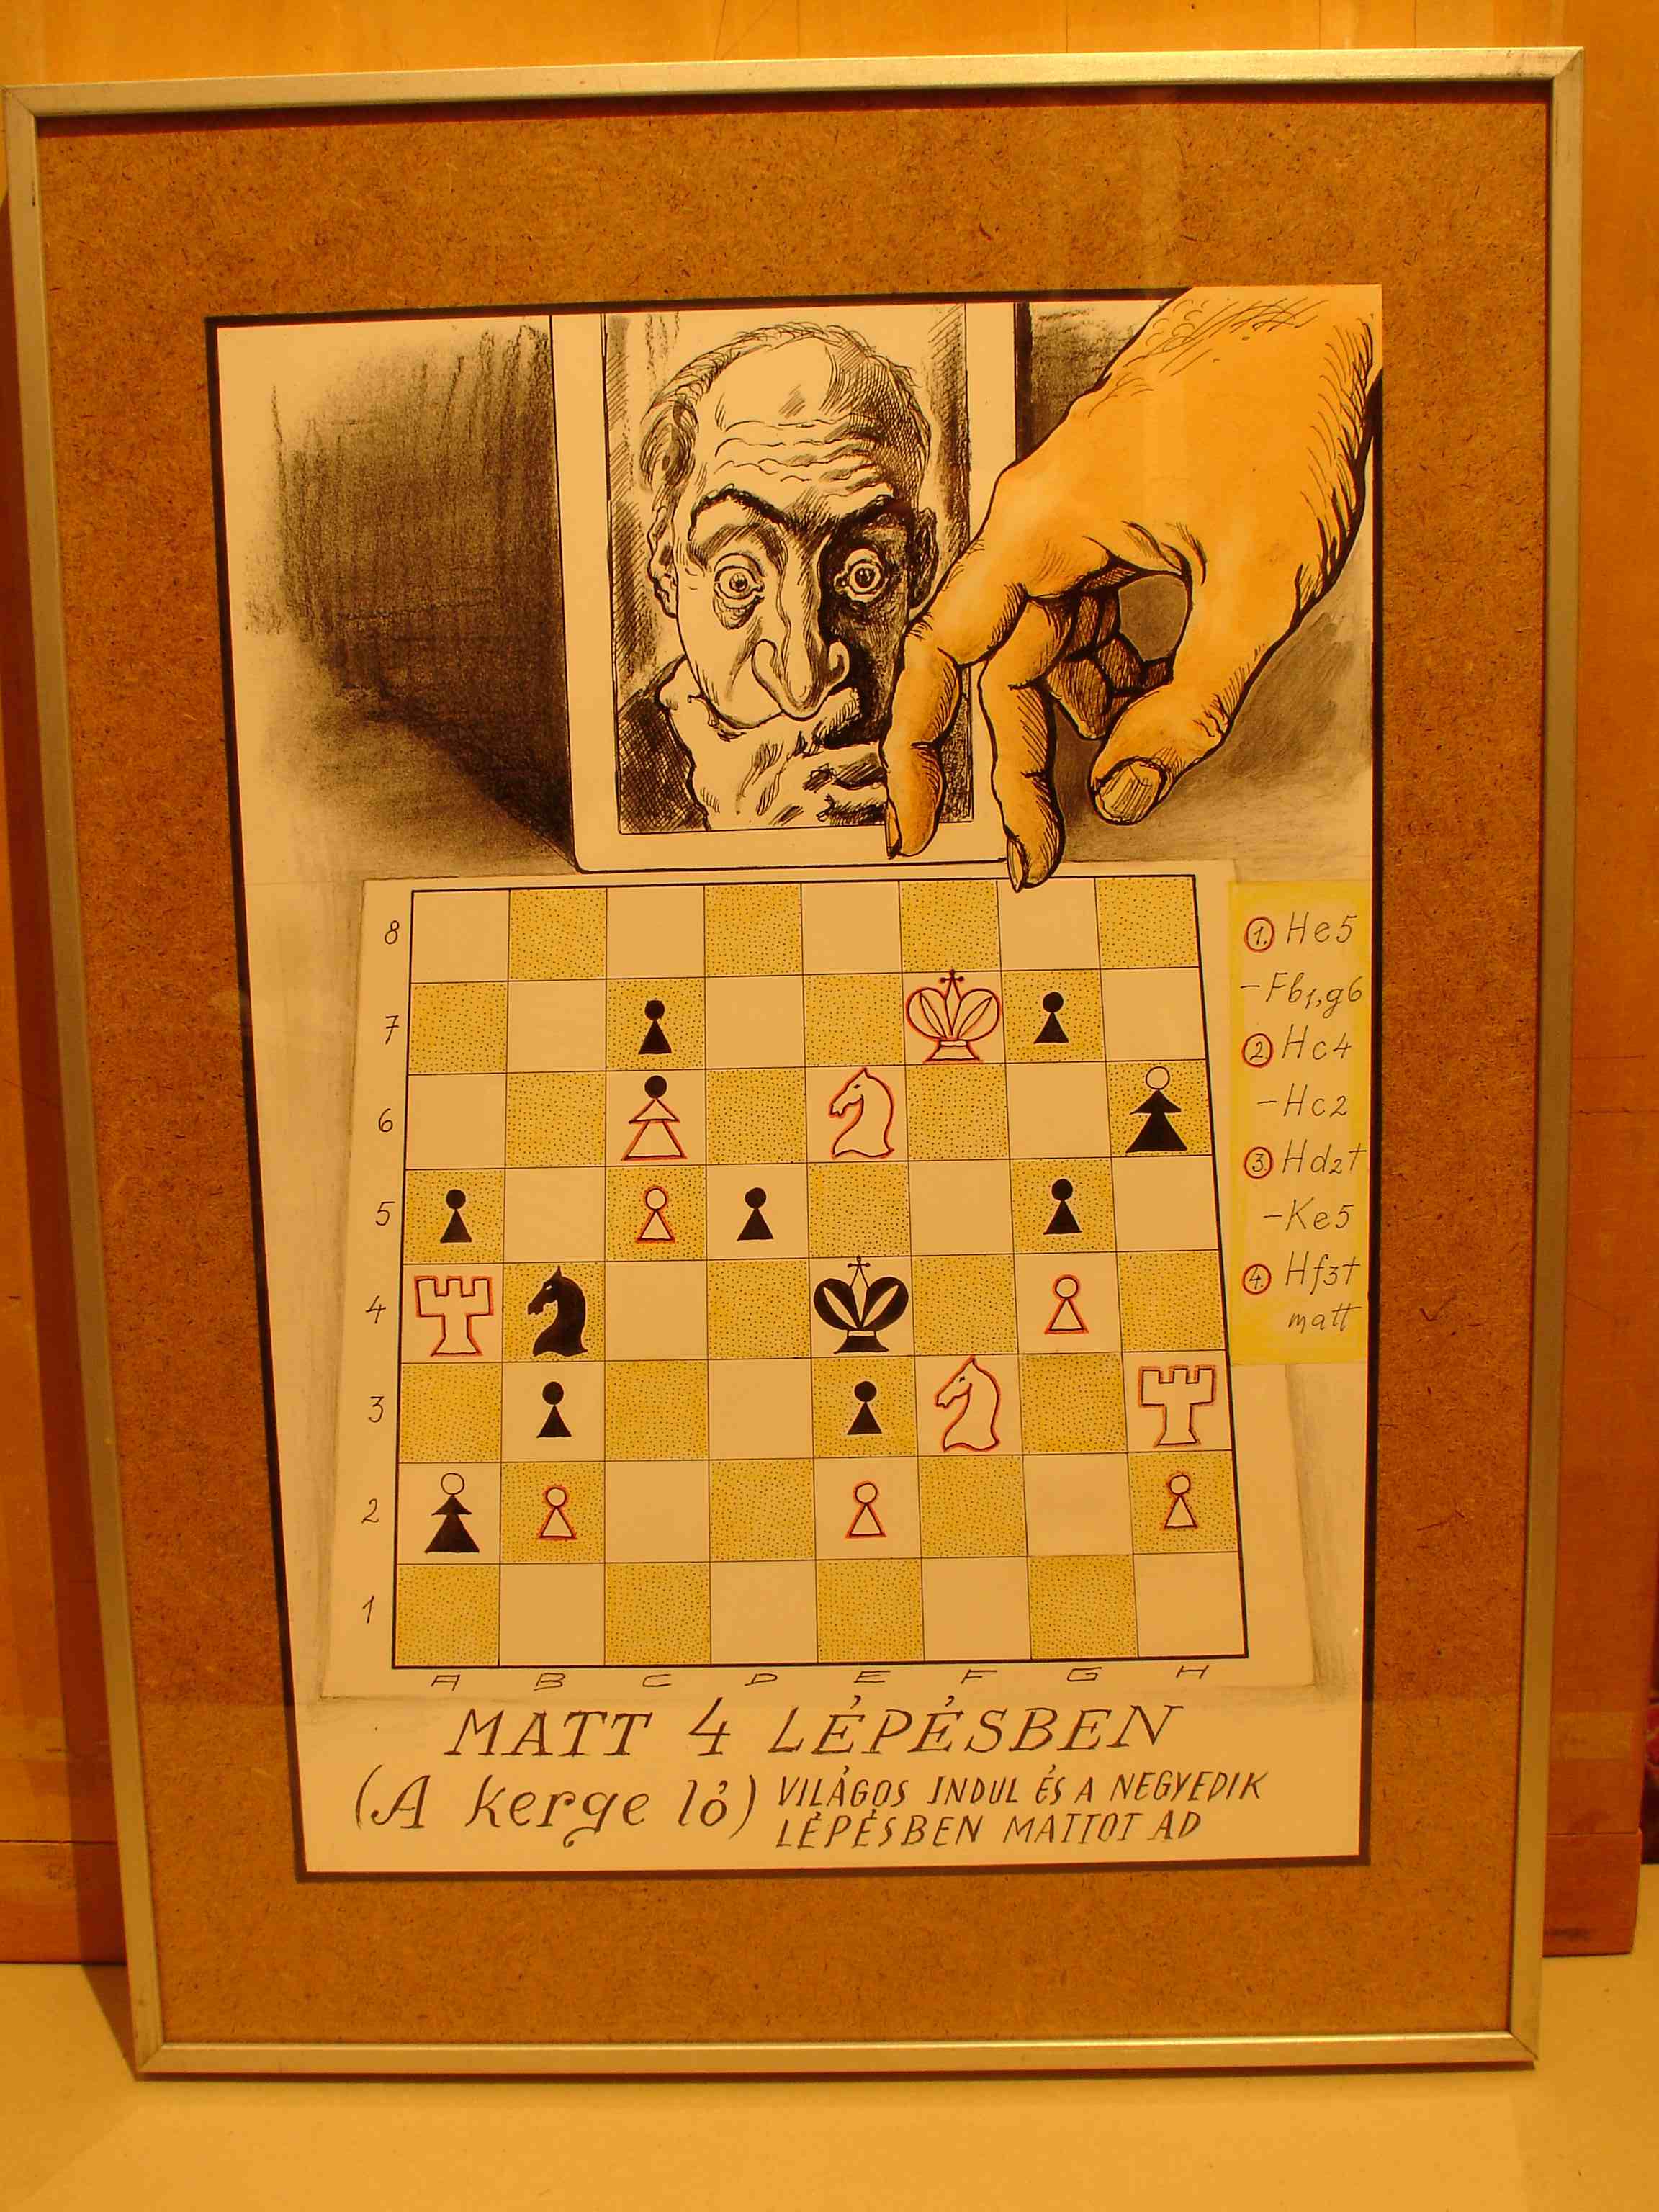 8
7
6
5
4
3
2
1
A B C D E F G H
1. He5
-Fb1,g6
2 Hc4
-Hc2
3 Hd2†
-Ke5
4. Hf3†
matt
MATT 4 LÉPÉSBEN
(A kerge ló) VILÁGOS INDUL ÉS A NEGYEDIK
LÉPÉSBEN MATTOT AD